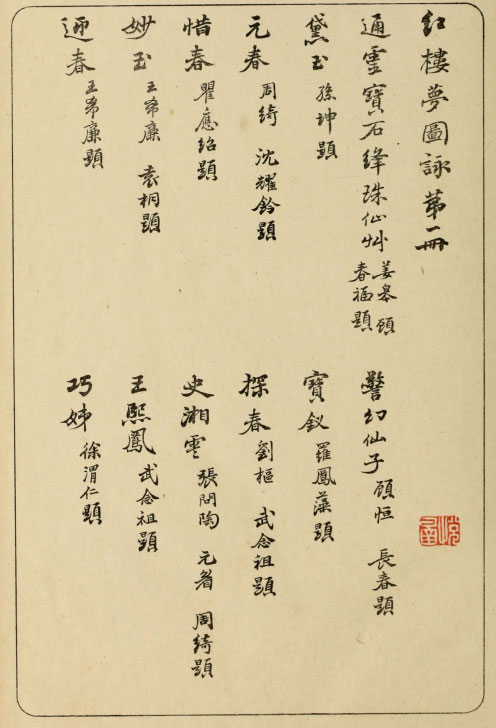 紅樓夢圖詠第一冊
通靈寶石絳珠仙艸 姜皋 顧春福題
警幻仙子 顧恒 長春題
黛玉 孫坤題
寶釵 羅鳳藻題
元春 周綺 沈耀鈴題
探春 劉樞 武念祖題
惜春 瞿應紹題
史湘雲 張問陶 元耆 周綺題
妙玉 王希廉 袁桐題
王熙鳳 武念祖題
迎春 王希廉題
巧姊 徐渭仁題